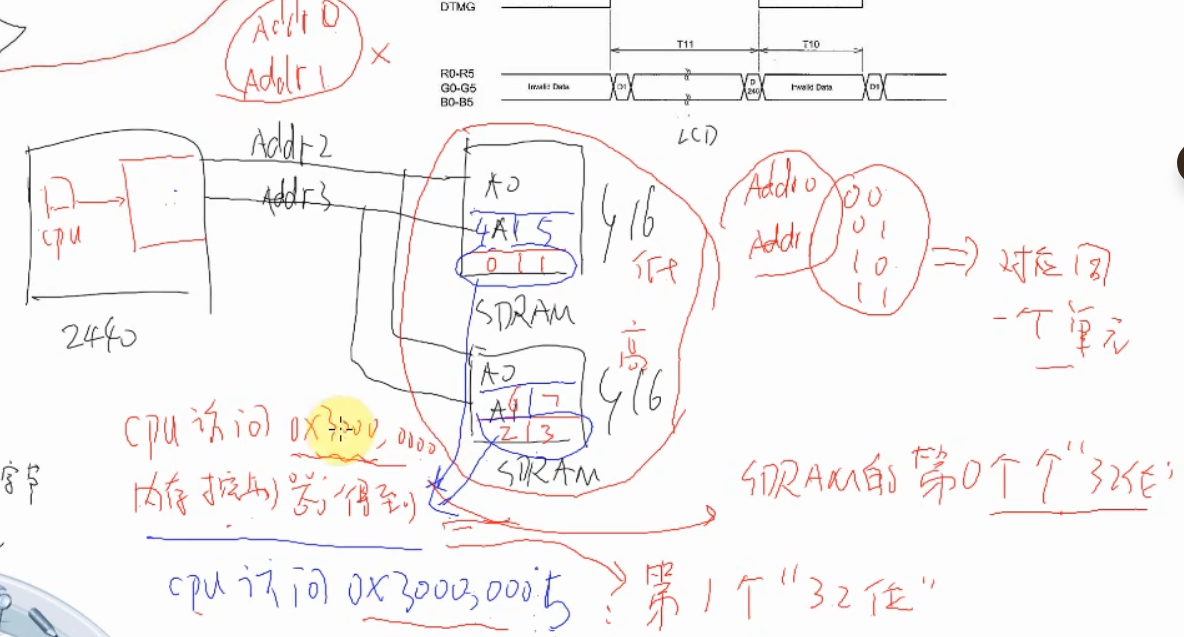 DTMG
Addr 0
Addr 1 ×
T11 T10
R0-R5
G0-G5
B0-B5
Invalid Data D1 D 240 Invalid Data D1
LCD
Addr2
Addr3
cpu
2440
A0
A1
4 5
0 1
16
低
SDRAM
高
A0
A1
6 7
2 3
16
SDRAM
Addr0
Addr
00
01
10
11
⇒ 对应同
一个单元
cpu访问 0x3000,0000
内存控制器得到
SDRAM的第0个个"32位"
字节
cpu访问 0x3000,0005
? 第1个"32位"